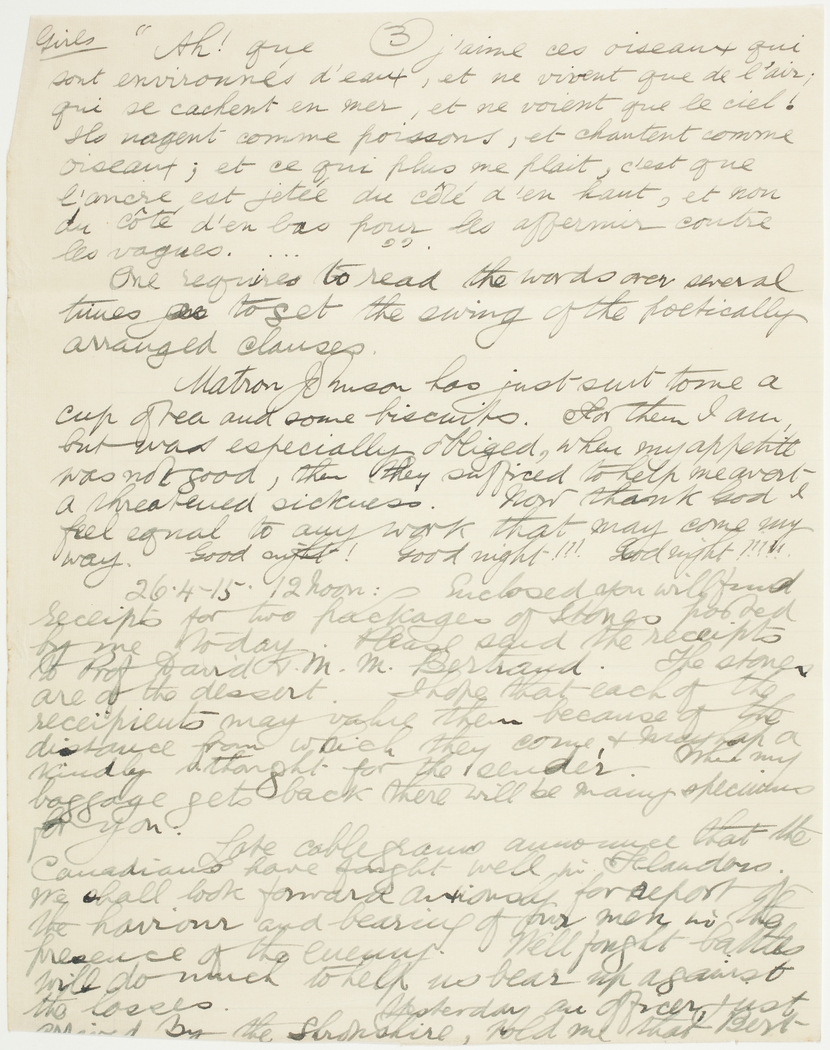 Girls " Ah! que (3) j'aime ces oiseaux qui
sont environnés d'eaux, et ne vivent que de l'air;
qui se cachent en mer, et ne voient que le ciel!
Ils nagent comme poissons, et chantent comme
oiseaux; et ce qui plus me plait, c'est que
l'ancre est jetée du côté d'en haut, et non
du côté d'en bas pour les affermir contre
les vagues. .... ".
One requires to read the words over several
times to get the swing of the poetically
arranged clauses.
Matron Johnson has just sent to me a
cup of tea and some biscuits. For them I am,
but was especially obliged, when my appetite
was not good, then they sufficed to help me avert
a threatened sickness. Now thank God I
feel equal to any work that may come my
way. Good night! Good night!!! Good night!!!!!
26.4-15. 12 Noon: Enclosed you will find
receipts for two packages of stones posted
by me today. Please send the receipts
to Prof David & M. M. Bertrand. The stones
are of the dessert. I hope that each of the
recipients may value them because of the
distance from which they come & mayhap a
kindly thought for the sender. When my
baggage gets back there will be many specimens
for you.
Late cablegrams announce that the
Canadians have fought well in Flanders.
We shall look forward anxiously for report of
the haviour and bearing of our men in the
presence of the enemy. Well fought battles
will do much to help us bear up against
the losses. Yesterday an officer, just
arrived by the Shropshire, told me that Bert-